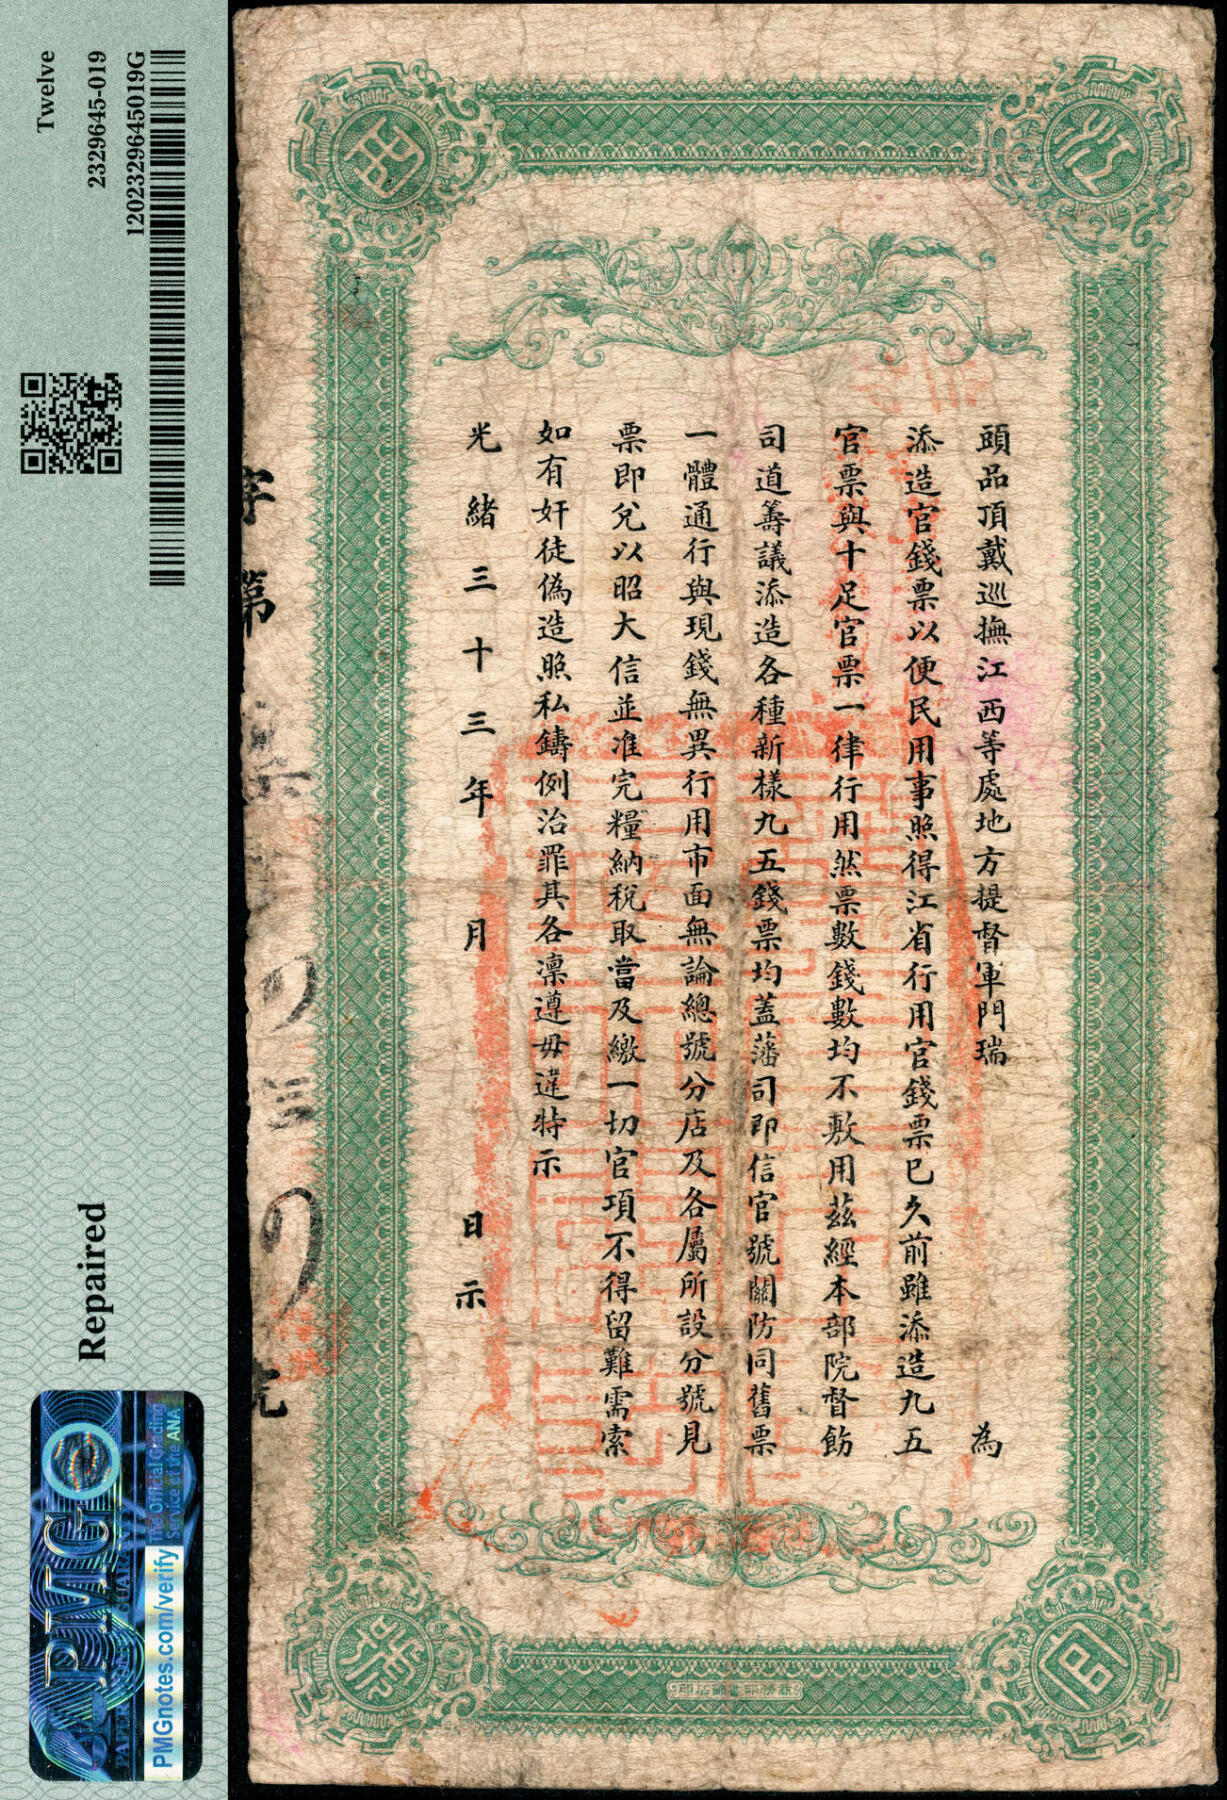 頭品頂戴巡撫江西等處地方提督軍門瑞 為
添造官錢票以便民用事照得江省行用官錢票已久前雖添造九五
官票與十足官票一律行用然票數錢數均不敷用茲經本部院督飭
司道籌議添造各種新樣九五錢票均蓋藩司即信官號關防同舊票
一體通行與現錢無異行用市面無論總號分店及各屬所設分號見
票即兌以昭大信並准完糧納稅取當及繳一切官項不得留難需索
如有奸徒偽造照私鑄例治罪其各凛遵毋違特示
光緒三十三年 月 日示
字第
Twelve
2329645-019
1202329645019G
Repaired
PMG
The Official Grading
Service of the ANA
PMGnotes.com/verify